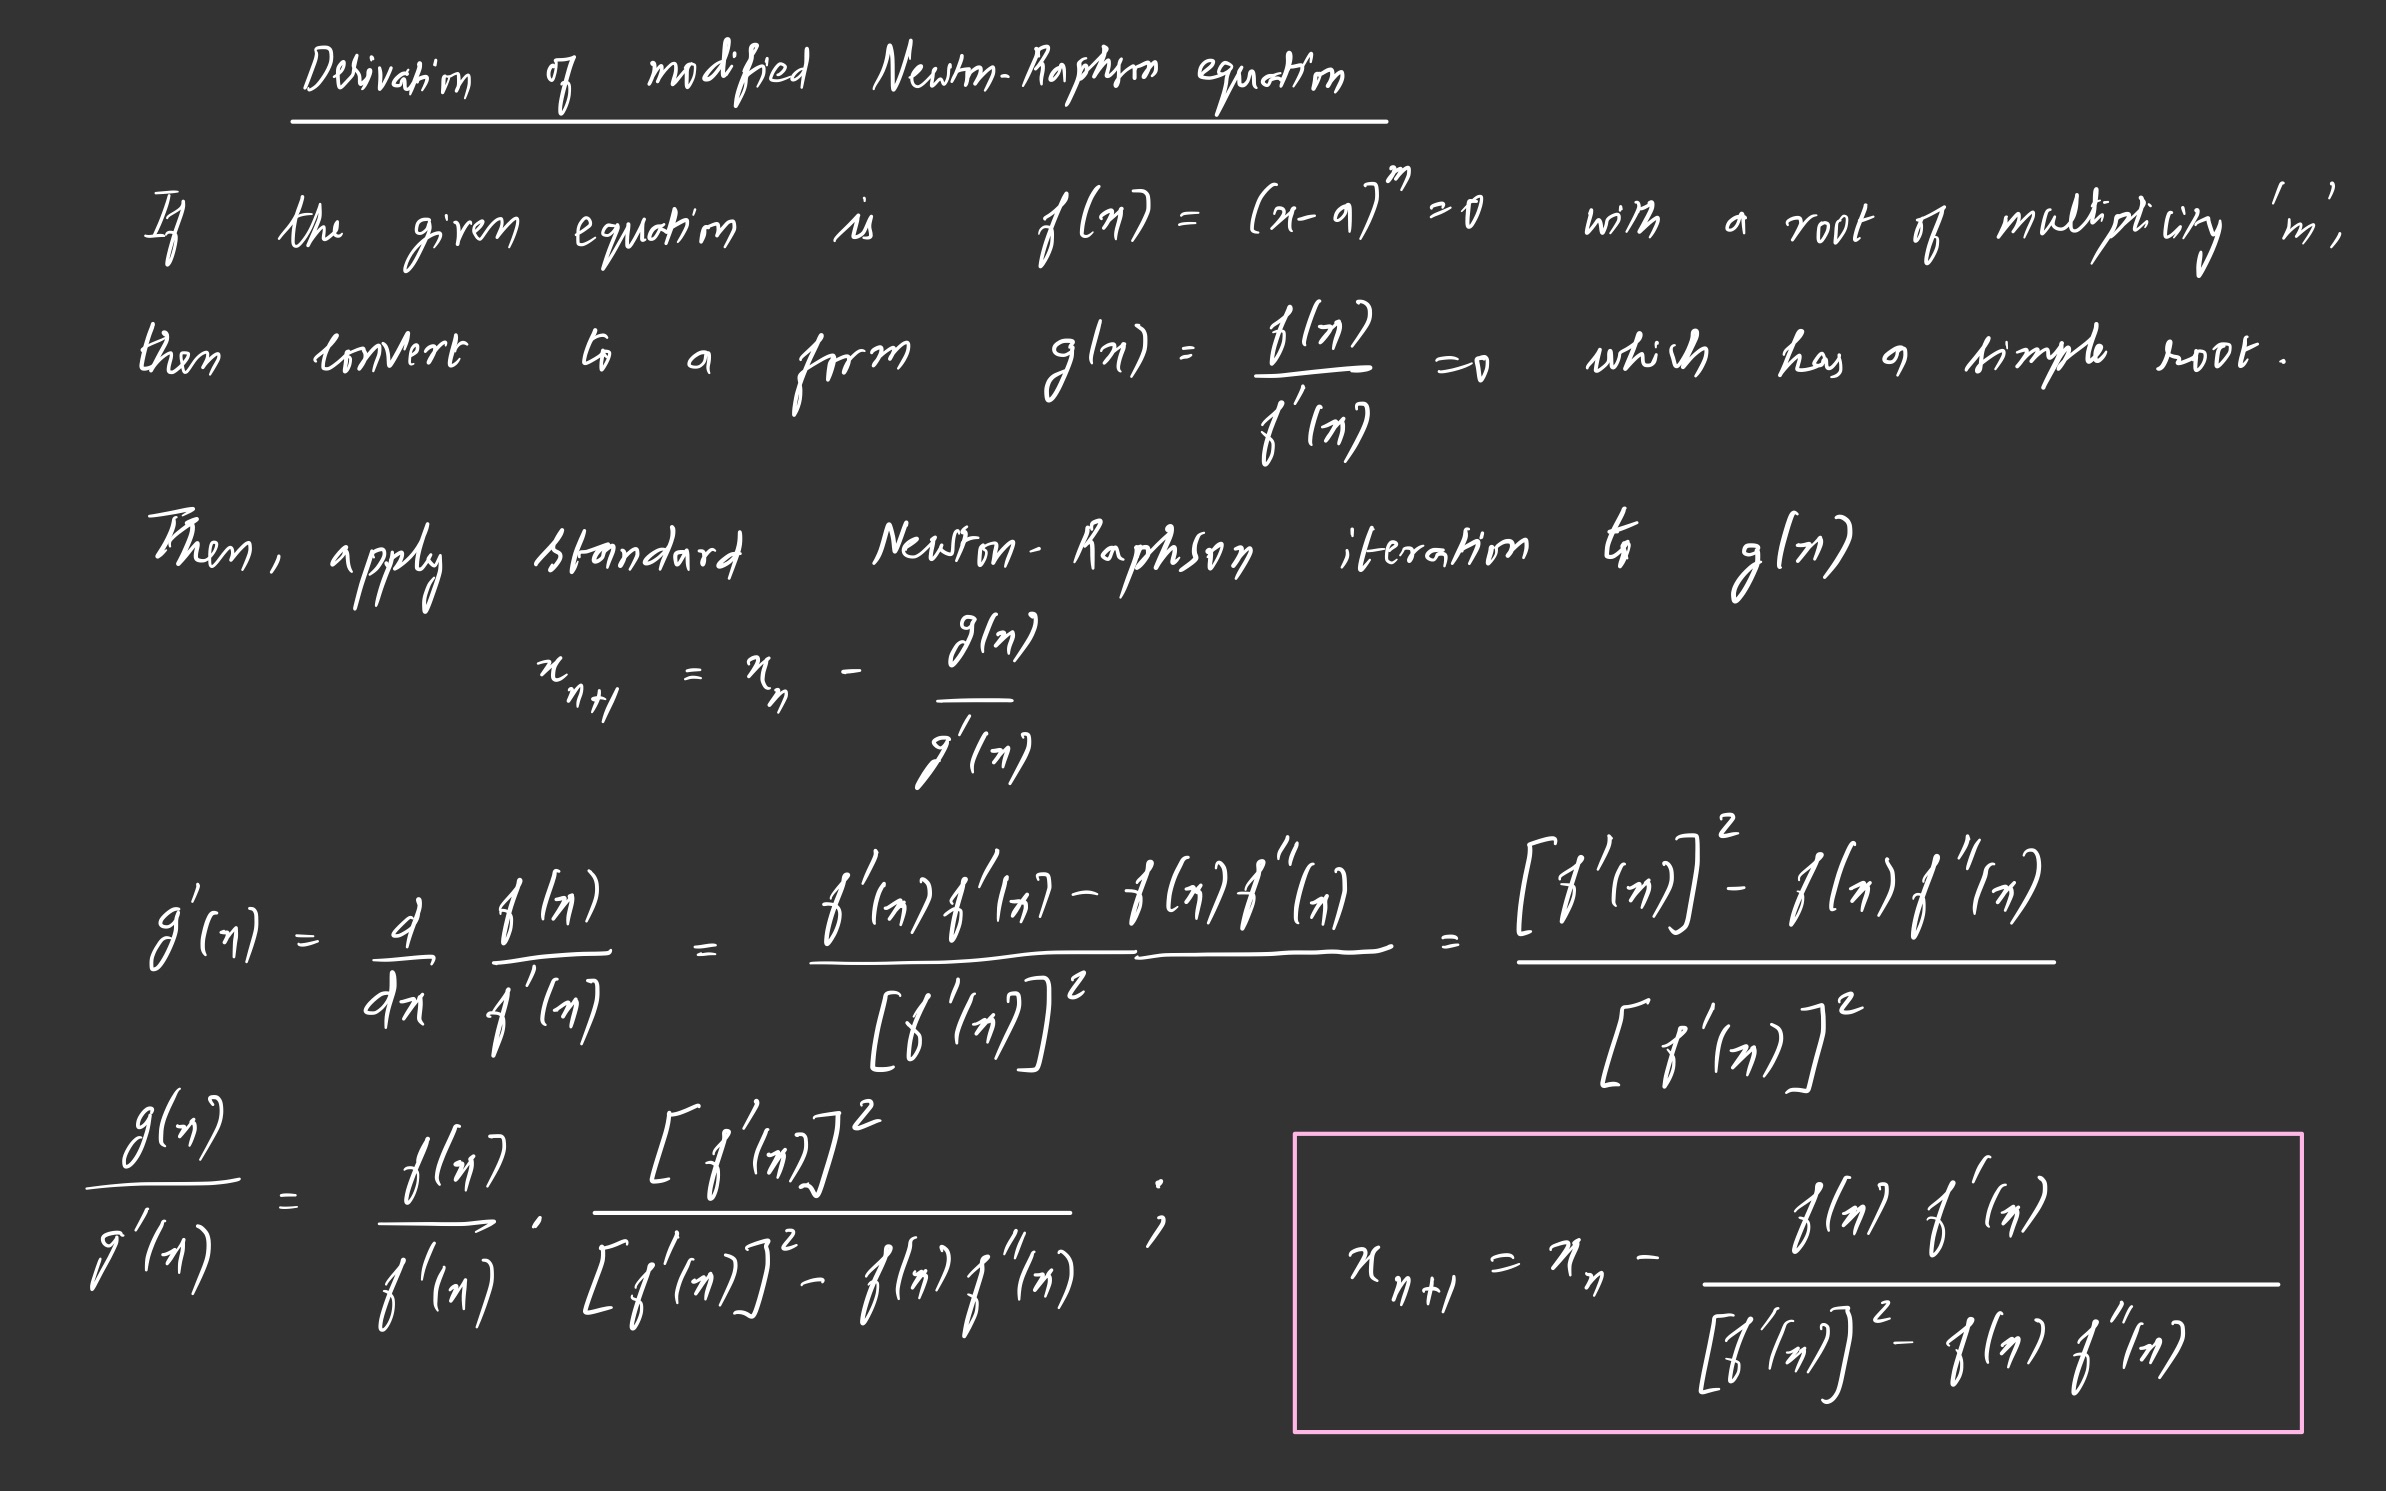 Derivation of modified Newton-Raphson equation
If the given equation is f(x) = (x-a)^m = 0 with a root of multiplicity 'm',
then convert to a form g(x) = f(x)/f'(x) = 0 which has a simple root.
Then, apply standard Newton-Raphson iteration to g(x)
x_{n+1} = x_n - g(x)/g'(x)
g'(x) = d/dx f(x)/f'(x) = (f'(x)f'(x) - f(x)f''(x))/[f'(x)]^2 = ([f'(x)]^2 - f(x)f''(x))/[f'(x)]^2
g(x)/g'(x) = f(x)/f'(x) . [f'(x)]^2/([f'(x)]^2 - f(x)f''(x)) ;
x_{n+1} = x_n - f(x) f'(x)/([f'(x)]^2 - f(x) f''(x))